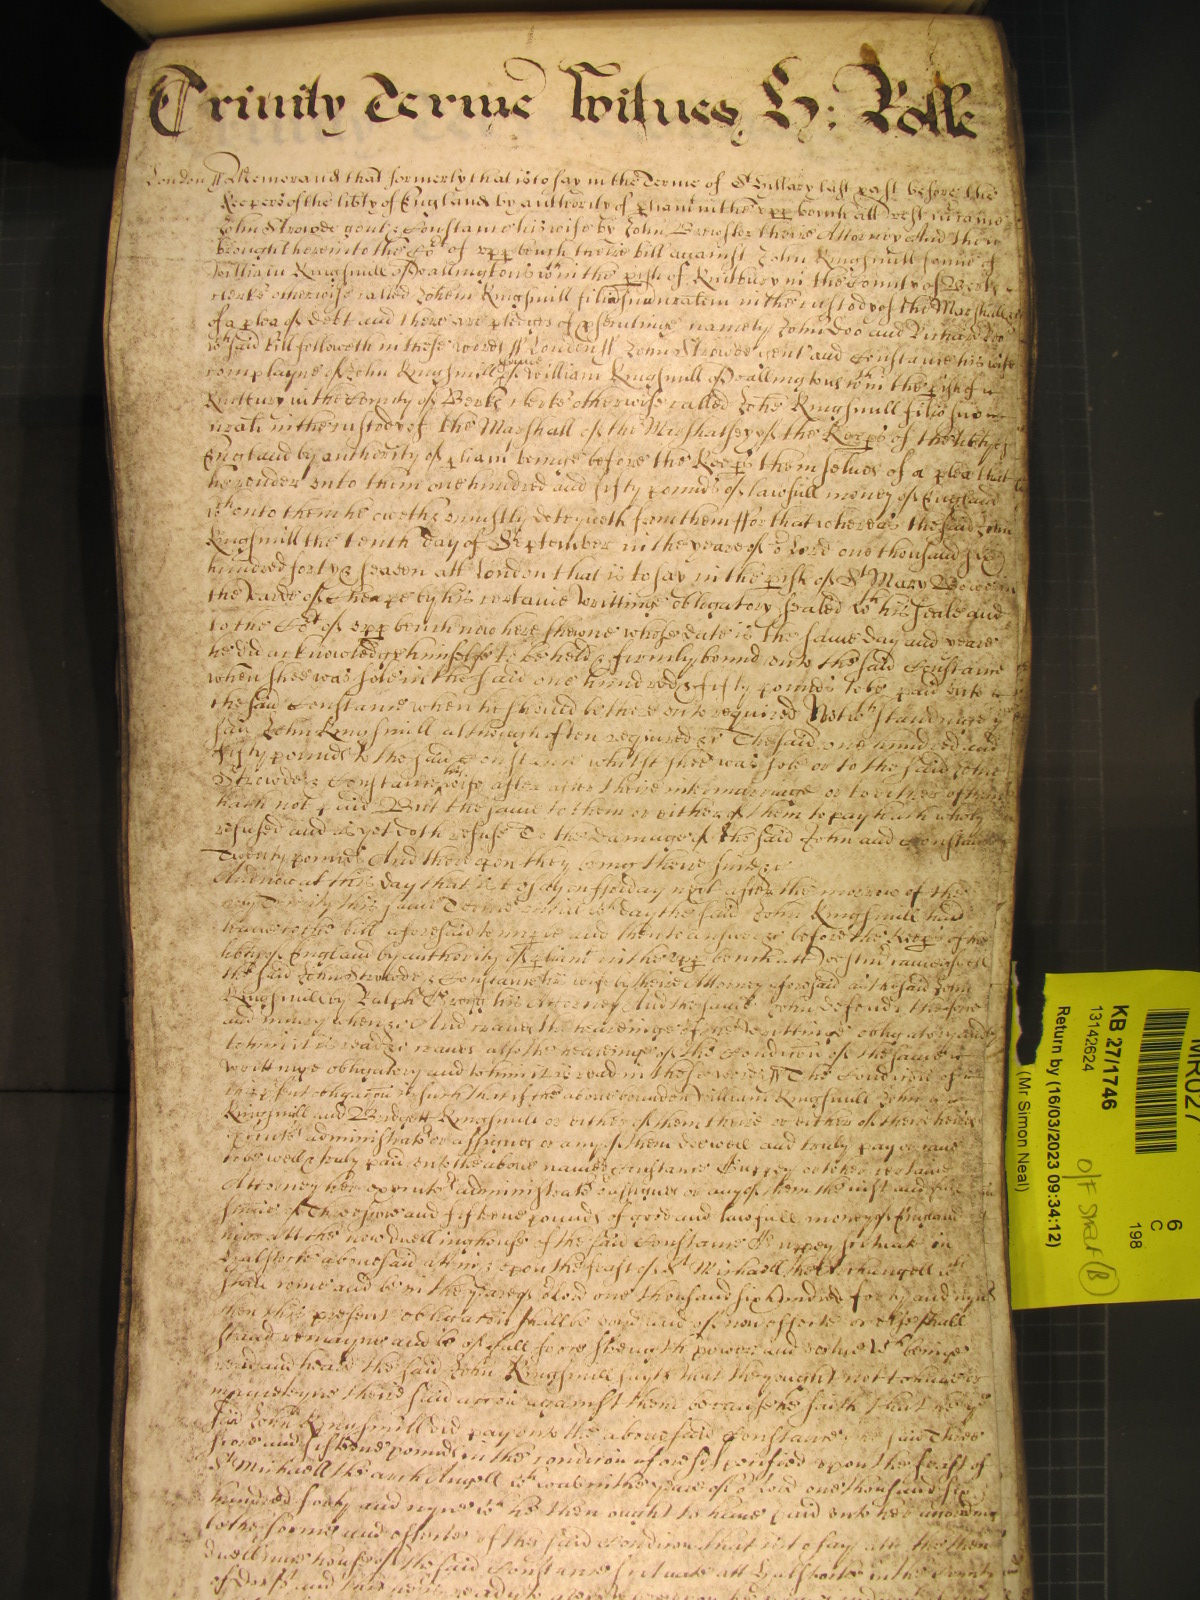 Trinity Terme Witnes H: Rolle
London ss Memorand that formerly that is to say in the Terme of St Hillary last past before the
Keepers of the libty of England by authority of pliam in the upp bench att Westm came
John Strowde gent & Constance his wife by John Brewster theire Attorney And then
brought here into the Cot of upp bench theire bill against John Kingsmill sonne of
William Kingsmill of Wallingtons win the pish of Kintbury in the County of Berks
clerke otherwise called John Kingsmill filio in the custody of the Marshall &c
of a plea of debt and there are pledges of psecutinge namely John Doo and Richard Roo
wch said bill followeth in these wordes ss London ss John Strowde gent and Constance his wife
complayne of John Kingsmill sonne of William Kingsmill of Wallingtons wthin the pish of
Kintbury in the County of Berks clerke otherwise called John Kingsmill filio suo
in the custody of the Marshall of the Marshalsey of the Keeps of the libty of
England by authority of pliam beinge before the Keeps themselves of a plea that
he render unto them one hundred and fifty pounds of lawfull money of England
wch unto them he oweth & uniustly deteyneth from them ffor that whereas the said John
Kingsmill the tenth day of September in the yeare of or Lord one thousand six
hundred forty & seaven att London that is to say in the pish of St Mary Bowe in
the warde of Cheape by his certaine writtinge obligatory sealed wth his seale and
to the Cot of upp bench now here shewne whose date is the same day and yeare
he did acknowledge himselfe to be held & firmely bound unto the said Constance
when shee was sole in the said one hundred & fifty pounds to be paid unto
the said Constance when he should be thereunto required Notwthstandinge ye
said John Kingsmill although often required &c The said one hundred and
fifty pounds to the said Constance whilst shee was sole or to the said John
Strowde & Constance his wife after theire intermarriage or to either of them
hath not paid But the same to them or either of them to pay hath wholy
refused and as yet doth refuse To the damage of the said John and Constance
Twenty pounds And thereupon they bringe theire suite &c
And now at this day that is to say on ffriday next after the morrow of the
holy Trinity this same Terme untill wch day the said John Kingsmill had
leave to the bill aforesaid to imple and then to answere &c before the Keeps of the
libty of England by authority of pliam in the upp bench att Westm came aswell
the said John Strowde & Constance his wife by theire Attorney aforesaid as the said John
Kingsmill by Ralph his Attorney And the same John defends the force
and iniury when &c And craves the hearinge of the writtinge obligatory and
to him it is read &c craves also the hearinge of the Condicion of the same
writtinge obligatory and to him it is read in these wordes ss The Condicion of
this obligation is such that if the above bounden William Kingsmill John
Kingsmill and Bridgett Kingsmill or either of them theire or either of theire heires
executrs administratrs or assignes or any of them doe well and truly pay or cause
to be well & truly paid unto the above named Constance or to her certaine
Attorney her executrs administratrs or assignes or any of them the iust and full
summe of Threescore and fifteene pounds of good and lawfull money of England
att the now dwellinghouse of the said Constance scituate in
abovesaid att or upon the feast of St Michaell the Archangell wch
shall come and be in the yeare of or Lord one thousand six hundred forty and nyne
then this present obligation shalbe voyd and of none effecte or else shall
stand remayne and be of full force strength power and vertue wch beinge
read and heard the said John Kingsmill sayth that they ought not to have or
mainteyne theire said accion against him because he saith that he ye
said John Kingsmill did pay unto the abovesaid Constance the said Three
score and fifteene pounds in the condicion aforesd specified upon the feast of
St Michaell the arch Angell wch was in the yeare of or Lord one thousand six
hundred forty and nyne wch he then ought to have paid unto her according
to the forme and effecte of the said Condicion that is to say att the then
dwellinge house of the said Constance scituate att in the County
of and this
KB 27/1746
13142624
Return by (16/03/2023 09:34:12)
(Mr Simon Neal)
MR027
6
C
198
O/F Shelf B